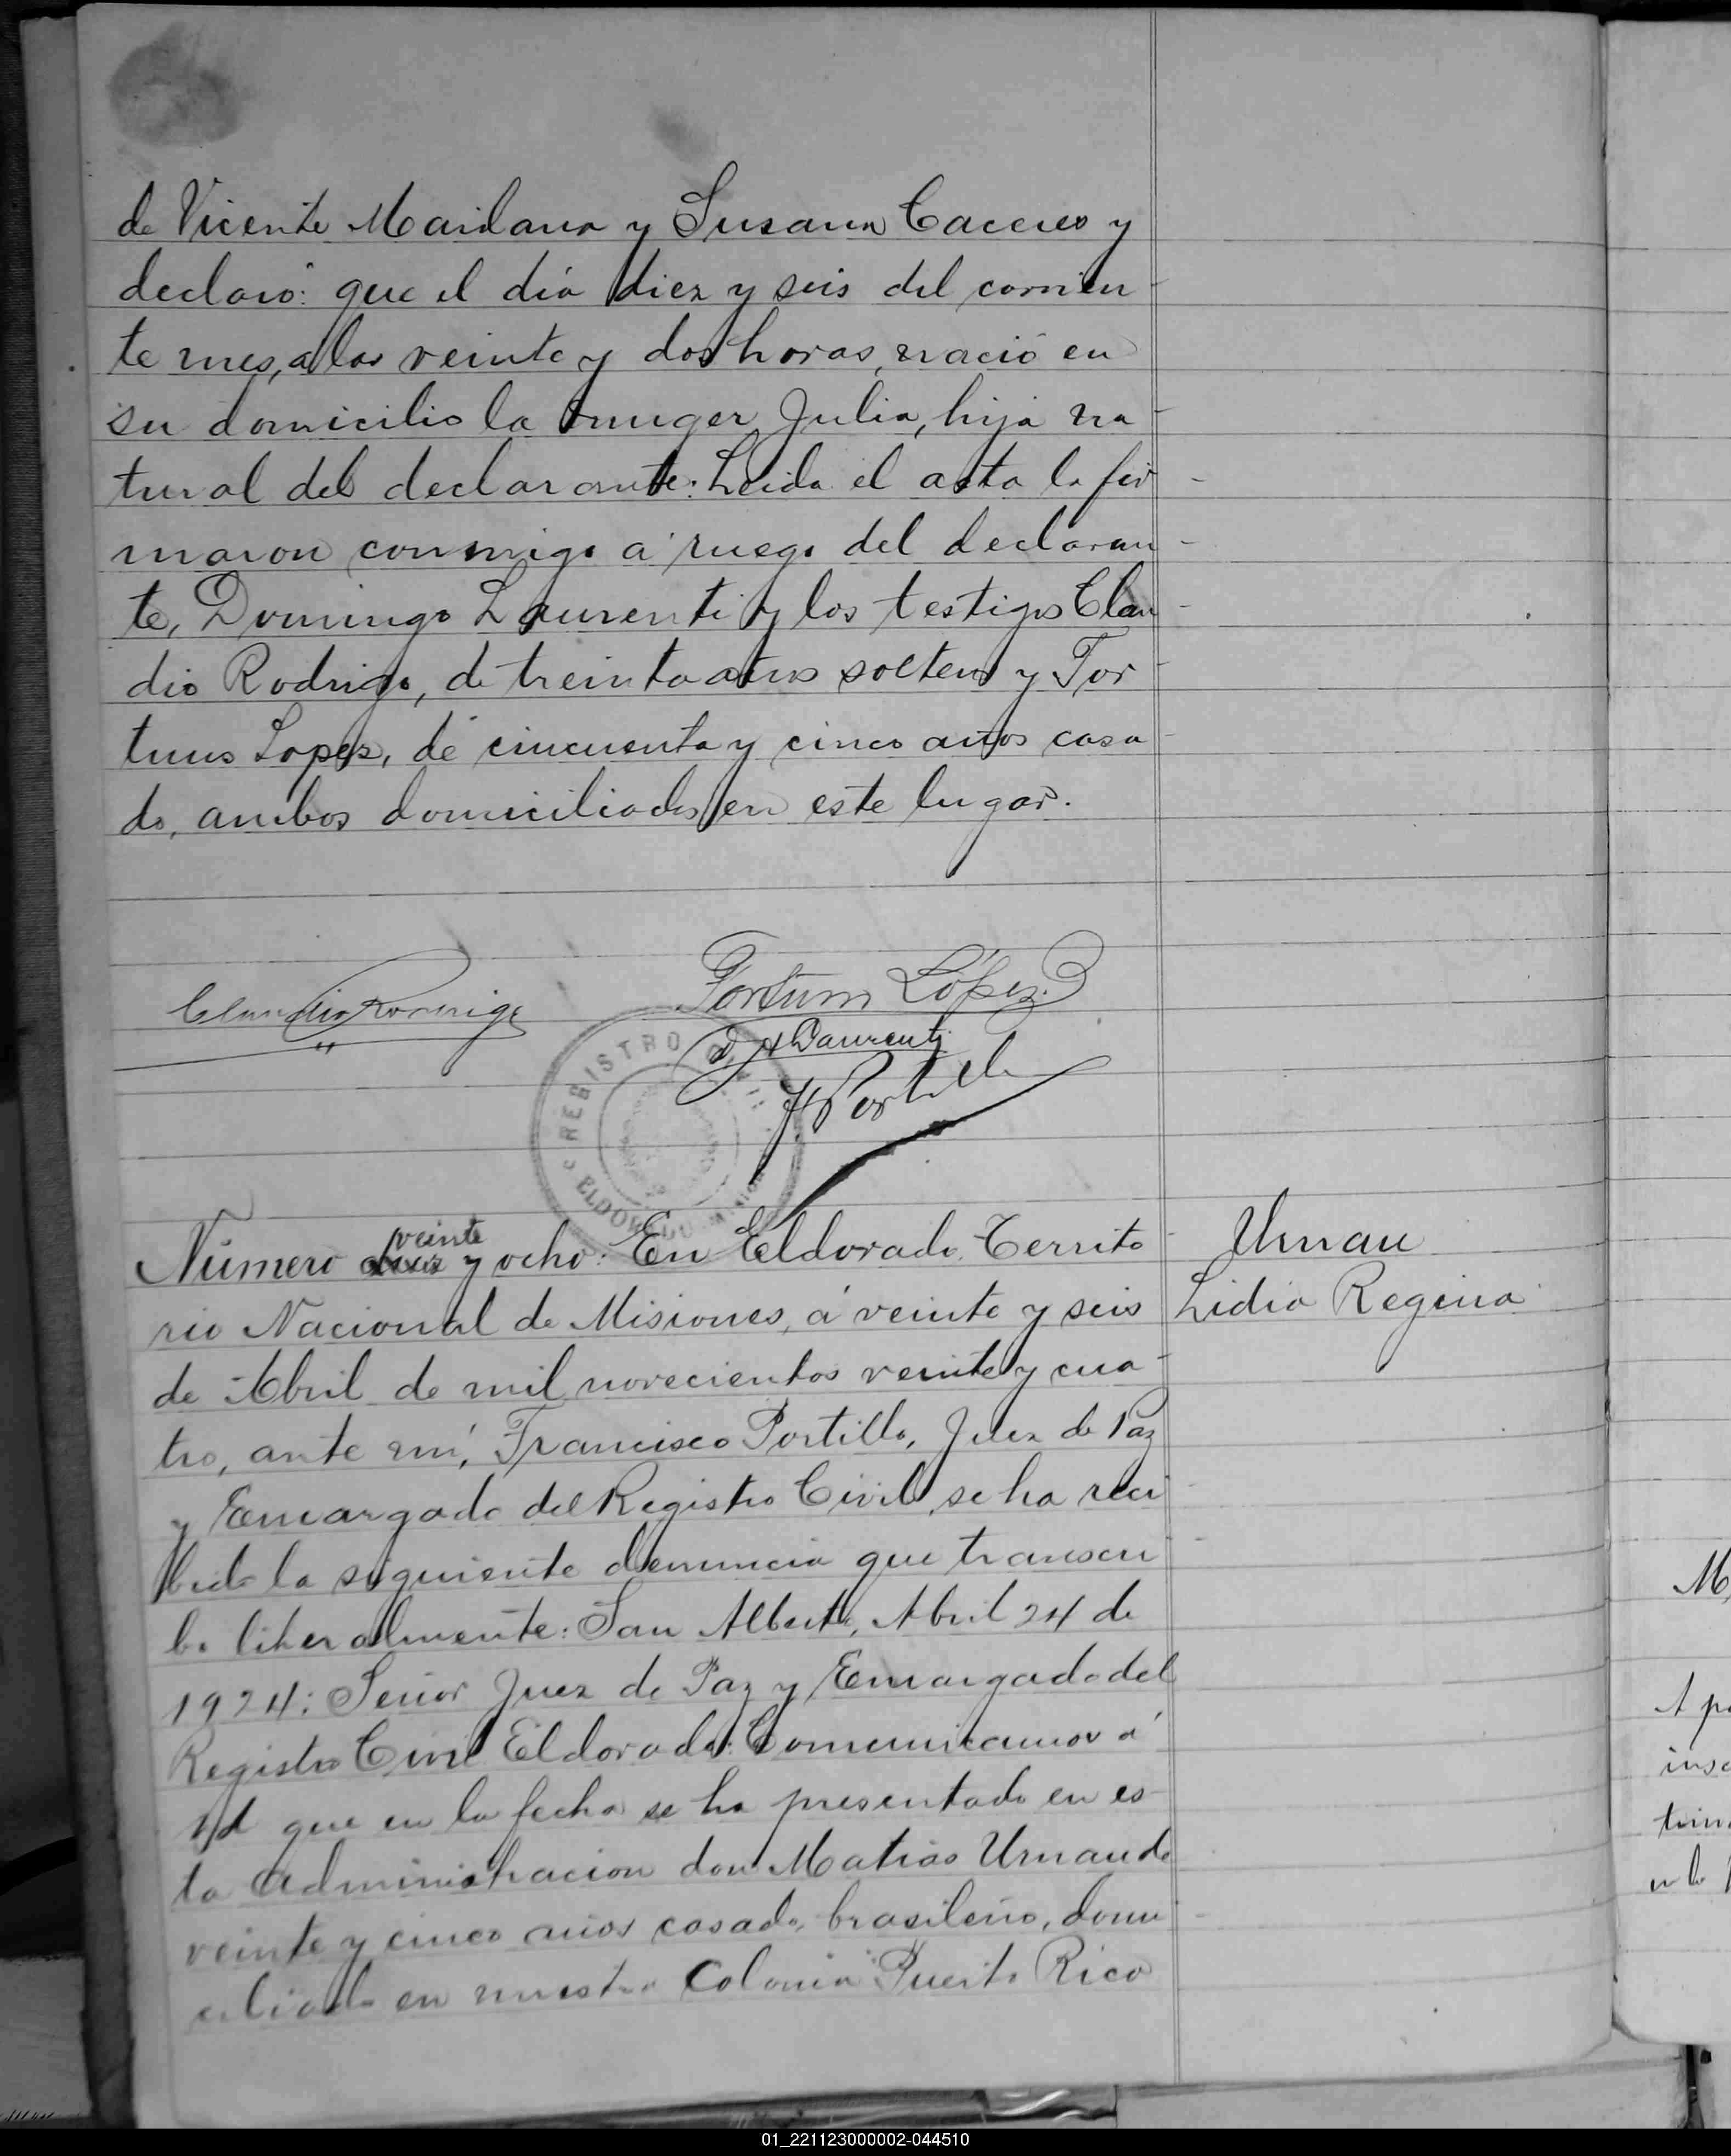 de Vicente Maidana y Susana Caceres y
declaró: que el día diez y seis del corrien-
te mes, a las veinte y dos horas, nació en
su domicilio la muger Julia, hija na-
tural del declarante: Leida el acta la fir-
maron conmigo a ruego del declaran-
te, Domingo Laurenti y los testigos Clau-
dio Rodrigo, de treinta años soltero y For-
tuno Lopez, de cincuenta y cinco años casa-
do, ambos domiciliados en este lugar.
Claudio Rodrigo
Fortuno López
D A Laurenti
F. Portillo
REGISTRO CIVIL
ELDORADO MISIONES
Número veinte y ocho: En Eldorado, Territo
rio Nacional de Misiones, á veinte y seis
de Abril de mil novecientos veinte y cua-
tro, ante mí, Francisco Portillo, Juez de Paz
y Encargado del Registro Civil, se ha reci
bido la siguiente denuncia que transcri
bo literalmente: San Alberto, Abril 24 de
1924: Señor Juez de Paz y Encargado del
Registro Civil Eldorado: Comunicamos á
Ud que en la fecha se ha presentado en es-
ta Administracion don Matias Urnau de
veinte y cinco años casado, brasileño, domi
ciliado en nuestra Colonia Puerto Rico
Urnau
Lidia Regina
M
A p
ins
tim
en lo
01_221123000002-044510